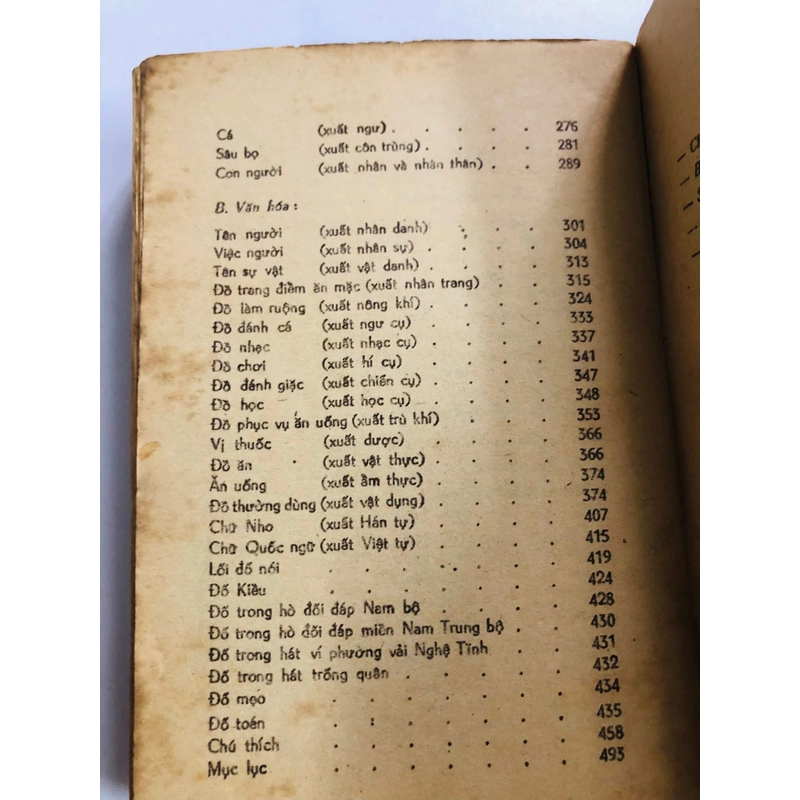 Cá (xuất ngư) . . . . . 276
Sâu bọ (xuất côn trùng) . . . . 281
Con người (xuất nhân và nhân thân) . . 289
B. Văn hóa :
Tên người (xuất nhân danh) . . . . 301
Việc người (xuất nhân sự) . . . . 304
Tên sự vật (xuất vật danh) . . . . 313
Đồ trang điểm ăn mặc (xuất nhân trang) . . . 315
Đồ làm ruộng (xuất nông khí) . . . . 324
Đồ đánh cá (xuất ngư cụ) . . . . 333
Đồ nhạc (xuất nhạc cụ) . . . . 337
Đồ chơi (xuất hí cụ) . . . . 341
Đồ đánh giặc (xuất chiến cụ) . . . . 347
Đồ học (xuất học cụ) . . . . 348
Đồ phục vụ ăn uống (xuất trù khí) . . . . 353
Vị thuốc (xuất dược) . . . . 366
Đồ ăn (xuất vật thực) . . . . 366
Ăn uống (xuất ẩm thực) . . . . 374
Đồ thường dùng (xuất vật dụng) . . . . 374
Chữ Nho (xuất Hán tự) . . . . 407
Chữ Quốc ngữ (xuất Việt tự) . . . . 415
Lối đố nói . . . . . . . 419
Đố Kiều . . . . . . . 424
Đố trong hò đối đáp Nam bộ . . . . 428
Đố trong hò đối đáp miền Nam Trung bộ . . 430
Đố trong hát ví phường vải Nghệ Tĩnh . . . 431
Đố trong hát trống quân . . . . . 432
Đố mẹo . . . . . . . 434
Đố toán . . . . . . . 435
Chú thích . . . . . . . 458
Mục lục . . . . . . . 493